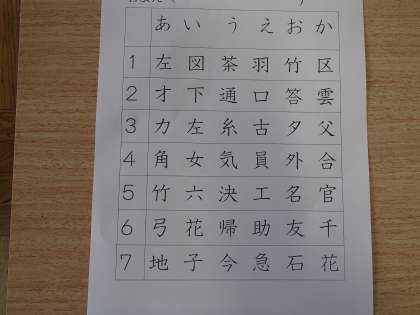 あ い う え お か
1 左 図 茶 羽 竹 区
2 才 下 通 口 答 雲
3 力 左 糸 古 夕 父
4 角 女 気 員 外 合
5 竹 六 決 工 名 官
6 弓 花 帰 助 友 千
7 地 子 今 急 石 花